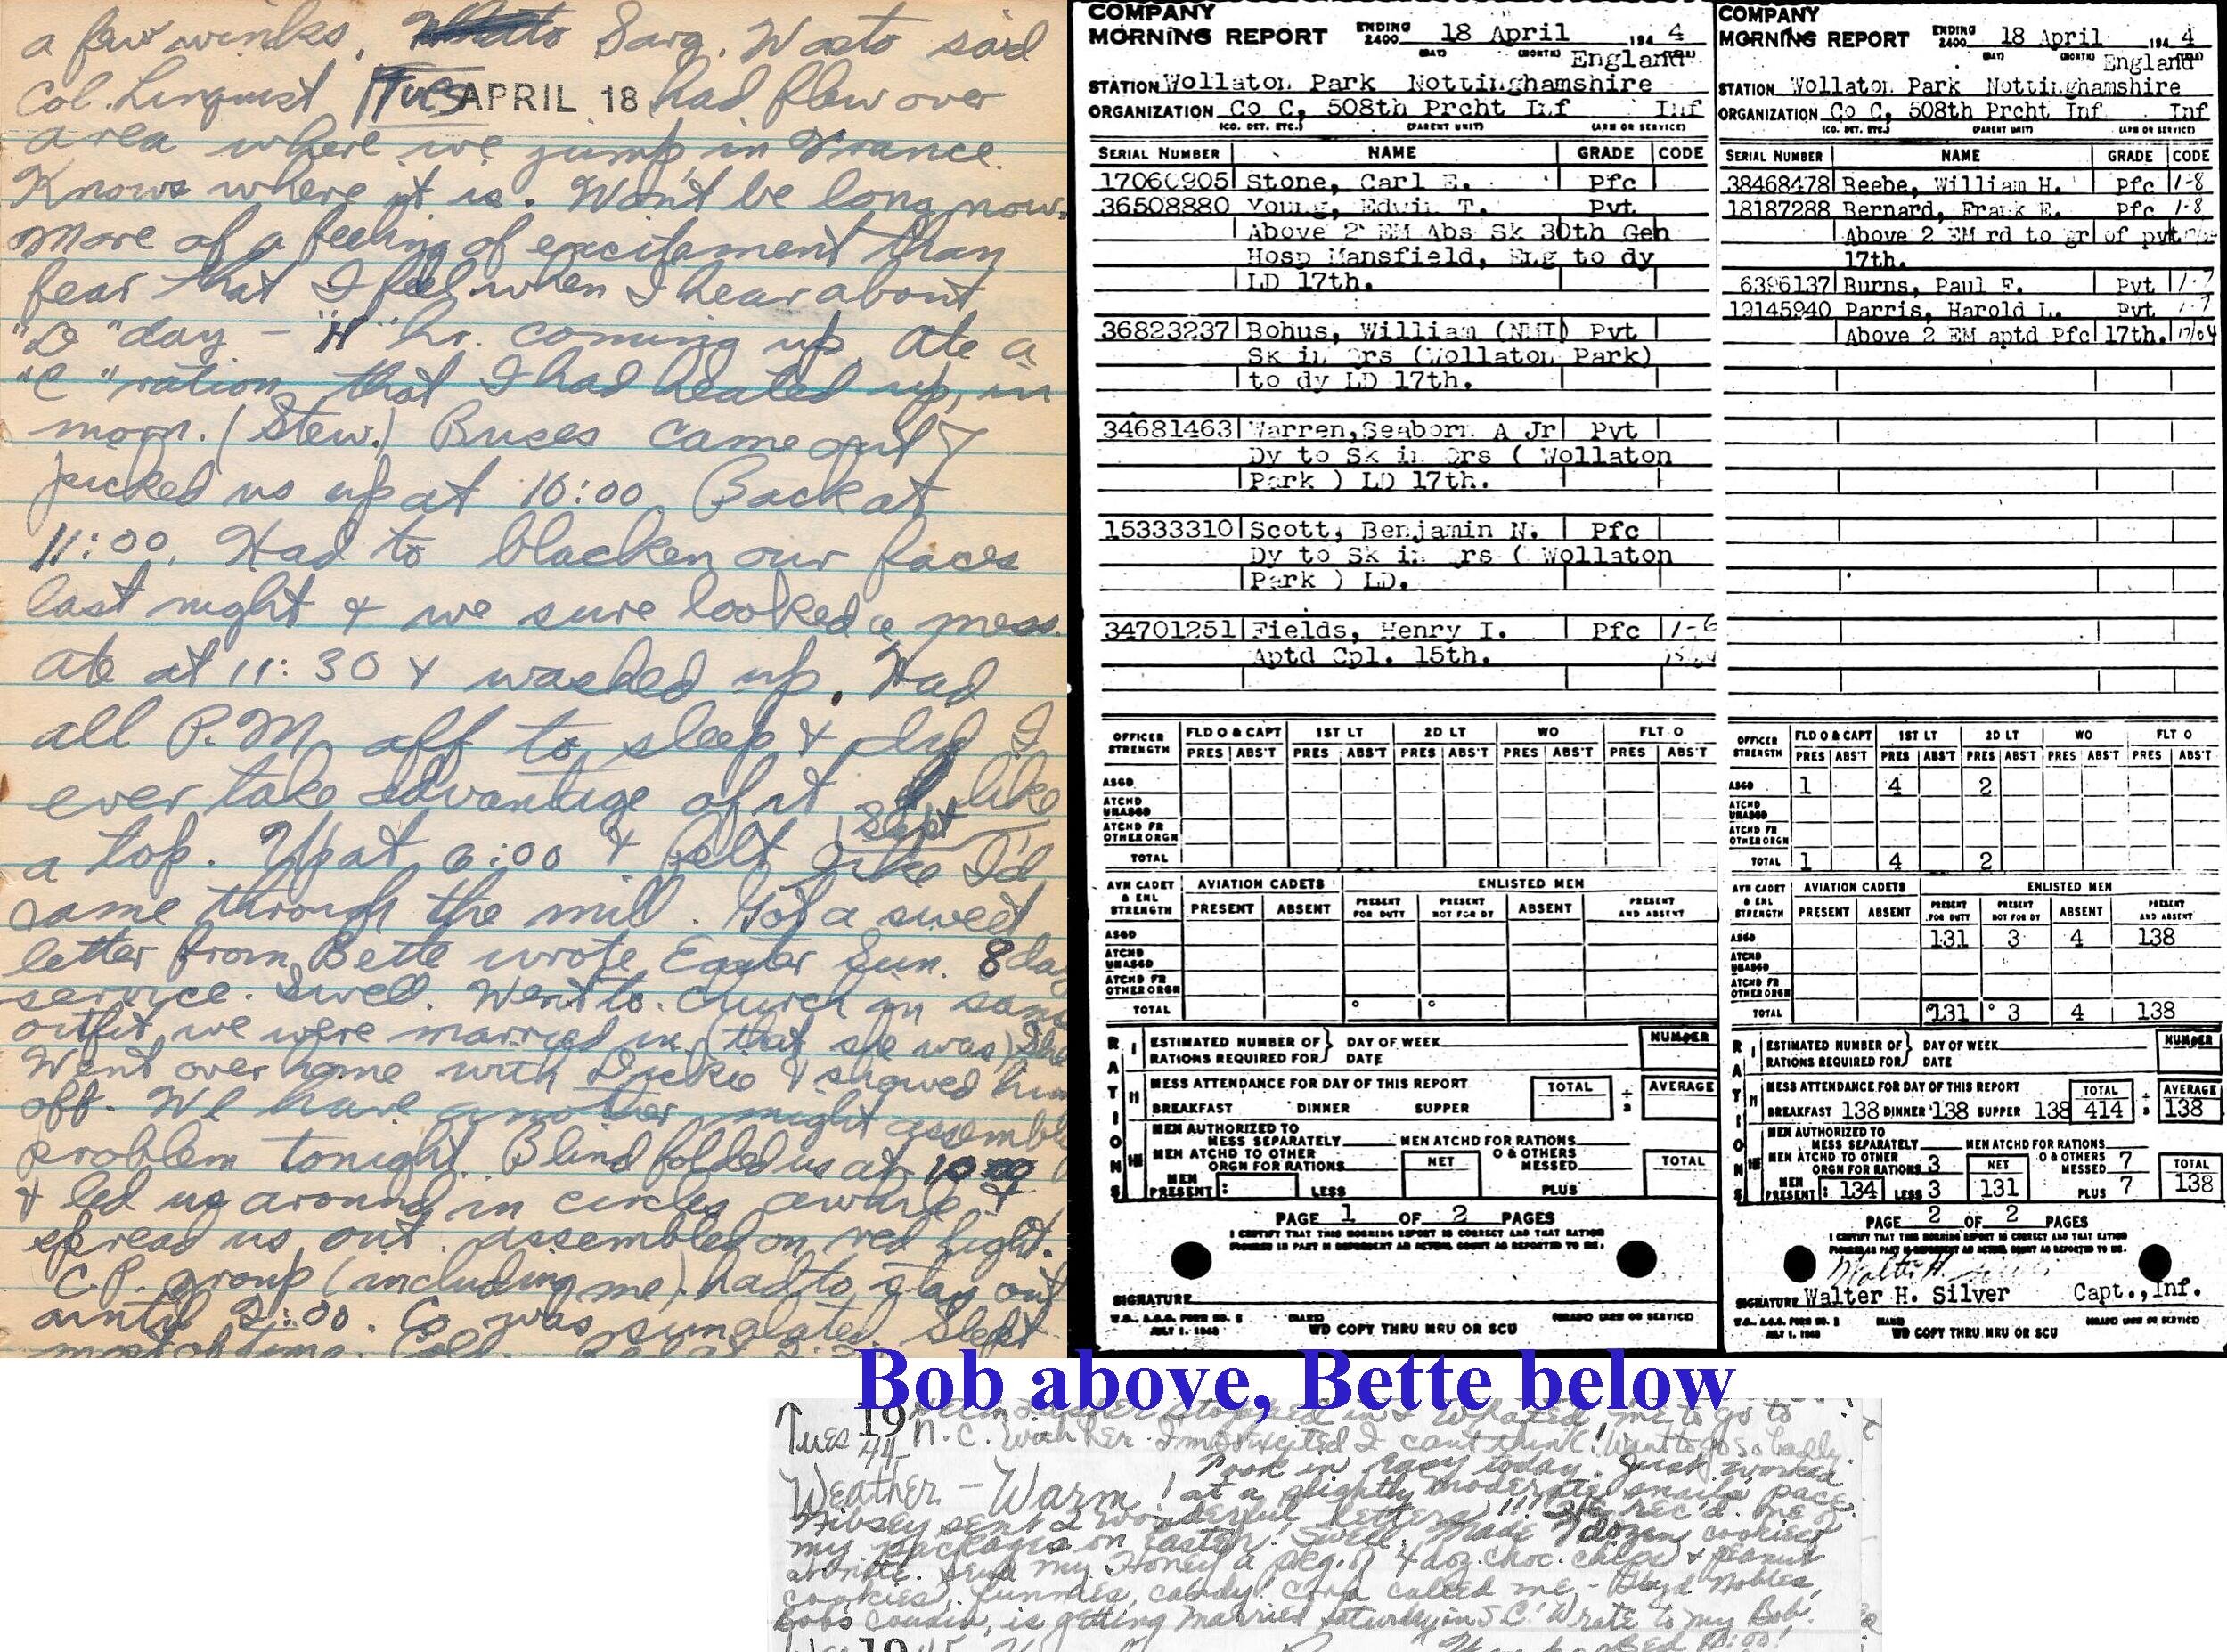 a few winks. Sarg. Wasto said
Col. Linquist Tues APRIL 18 had flew over
area where we jump, in France.
Knows where it is. Won't be long now.
More of a feeling of excitement than
fear that I feel when I hear about
"D" day - "H" hr. coming up. Ate a
"C" ration that I had heated up, in
morn. (Stew.) Buses came out &
picked us up at 10:00. Back at
11:00. Had to blacken our faces
last night & we sure looked a mess.
Ate at 11:30 & washed up. Had
all P.M. off to sleep & did I
ever take advantage of it. Slept like
a top. Up at 6:00 & felt like I'd
came through the mill. Got a sweet
letter from Bette wrote Easter Sun. 8 day
service. Swell. Went to church in same
outfit we were married in (that she was) She
Went over home with Dickie & showed him
off. We have another night assembly
problem tonight. Blindfolded us at 10:00
& led us around in circles awhile &
spread us out. Assembled on red light.
C.P. group (including me) had to stay out
until 2:00. Co. was Slept
most of time. Cold.
COMPANY
MORNING REPORT ENDING 2400 18 April 194 4
(DAY) (MONTH) England
STATION Wollaton Park Nottinghamshire
ORGANIZATION Co C, 508th Prcht Inf Inf
(CO. DET. ETC.) (PARENT UNIT) (ARM OR SERVICE)
SERIAL NUMBER NAME GRADE CODE
17060905 Stone, Carl E. Pfc
36508880 Young, Edwin T. Pvt
Above 2 EM Abs Sk 30th Gen
Hosp Mansfield, Eng to dy
LD 17th.
36823237 Bohus, William (NMI) Pvt
Sk in Qrs (Wollaton Park)
to dy LD 17th.
34681463 Warren, Seaborn A Jr Pvt
Dy to Sk in Qrs ( Wollaton
Park ) LD 17th.
15333310 Scott, Benjamin N. Pfc
Dy to Sk in Qrs ( Wollaton
Park ) LD.
34701251 Fields, Henry I. Pfc 1-6
Aptd Cpl. 15th.
OFFICER STRENGTH FLD O & CAPT 1ST LT 2D LT WO FLT O
PRES ABS'T PRES ABS'T PRES ABS'T PRES ABS'T PRES ABS'T
ASGD
ATCHD UNASGD
ATCHD FR OTHER ORGN
TOTAL
AVN CADET & ENL STRENGTH AVIATION CADETS ENLISTED MEN
PRESENT ABSENT PRESENT FOR DUTY PRESENT NOT FOR DY ABSENT PRESENT AND ABSENT
ASGD
ATCHD UNASGD
ATCHD FR OTHER ORGN
TOTAL
RATIONS
I ESTIMATED NUMBER OF RATIONS REQUIRED FOR DAY OF WEEK DATE NUMBER
II MESS ATTENDANCE FOR DAY OF THIS REPORT TOTAL ÷ 3 AVERAGE
BREAKFAST DINNER SUPPER
MEN AUTHORIZED TO MESS SEPARATELY MEN ATCHD FOR RATIONS
III MEN ATCHD TO OTHER ORGN FOR RATIONS NET O & OTHERS MESSED TOTAL
MEN PRESENT: LESS PLUS
PAGE 1 OF 2 PAGES
I CERTIFY THAT THIS MORNING REPORT IS CORRECT AND THAT RATION
FIGURES IN PART III REPRESENT AN ACTUAL COUNT AS REPORTED TO ME.
SIGNATURE
W.D., A.G.O. FORM NO. 1
JULY 1, 1943 WD COPY THRU MRU OR SCU
COMPANY
MORNING REPORT ENDING 2400 18 April 194 4
(DAY) (MONTH) England
STATION Wollaton Park Nottinghamshire
ORGANIZATION Co C, 508th Prcht Inf Inf
(CO. DET. ETC.) (PARENT UNIT) (ARM OR SERVICE)
SERIAL NUMBER NAME GRADE CODE
38468478 Beebe, William H. Pfc 1-8
18187288 Bernard, Frank E. Pfc 1-8
Above 2 EM rd to gr of pvt
17th.
6396137 Burns, Paul F. Pvt 1-7
19145940 Parris, Harold L. Pvt 1-7
Above 2 EM aptd Pfc 17th. 17/04
OFFICER STRENGTH FLD O & CAPT 1ST LT 2D LT WO FLT O
PRES ABS'T PRES ABS'T PRES ABS'T PRES ABS'T PRES ABS'T
ASGD 1 4 2
ATCHD UNASGD
ATCHD FR OTHER ORGN
TOTAL 1 4 2
AVN CADET & ENL STRENGTH AVIATION CADETS ENLISTED MEN
PRESENT ABSENT PRESENT FOR DUTY PRESENT NOT FOR DY ABSENT PRESENT AND ABSENT
ASGD 131 3 4 138
ATCHD UNASGD
ATCHD FR OTHER ORGN
TOTAL 131 3 4 138
RATIONS
I ESTIMATED NUMBER OF RATIONS REQUIRED FOR DAY OF WEEK DATE NUMBER
II MESS ATTENDANCE FOR DAY OF THIS REPORT TOTAL ÷ 3 AVERAGE
BREAKFAST 138 DINNER 138 SUPPER 138 414 138
MEN AUTHORIZED TO MESS SEPARATELY MEN ATCHD FOR RATIONS
III MEN ATCHD TO OTHER ORGN FOR RATIONS 3 NET O & OTHERS MESSED 7 TOTAL
MEN PRESENT: 134 LESS 3 131 PLUS 7 138
PAGE 2 OF 2 PAGES
I CERTIFY THAT THIS MORNING REPORT IS CORRECT AND THAT RATION
FIGURES IN PART III REPRESENT AN ACTUAL COUNT AS REPORTED TO ME.
Walter H. Silver
SIGNATURE Walter H. Silver Capt., Inf.
W.D., A.G.O. FORM NO. 1
JULY 1, 1943 WD COPY THRU MRU OR SCU
Bob above, Bette below
stopped in & wanted me to go to
Tues 19 44 N.C. with her. I'm so excited I can't think! Want to go so badly.
Took in easy today. Just worked
Weather - Warm! at a slightly moderate snails pace.
Nibsey sent 2 wonderful letters!!! He rec'd one of
my packages on Easter. Swell. Made 7 dozen cookies
tonite. Send my Honey a pkg. of 4 doz. choc. chips & peanut
cookies, funnies, candy! Cora called me - Nobles,
Bobs cousin, is getting married Saturday in S.C! Wrote to my Bob.